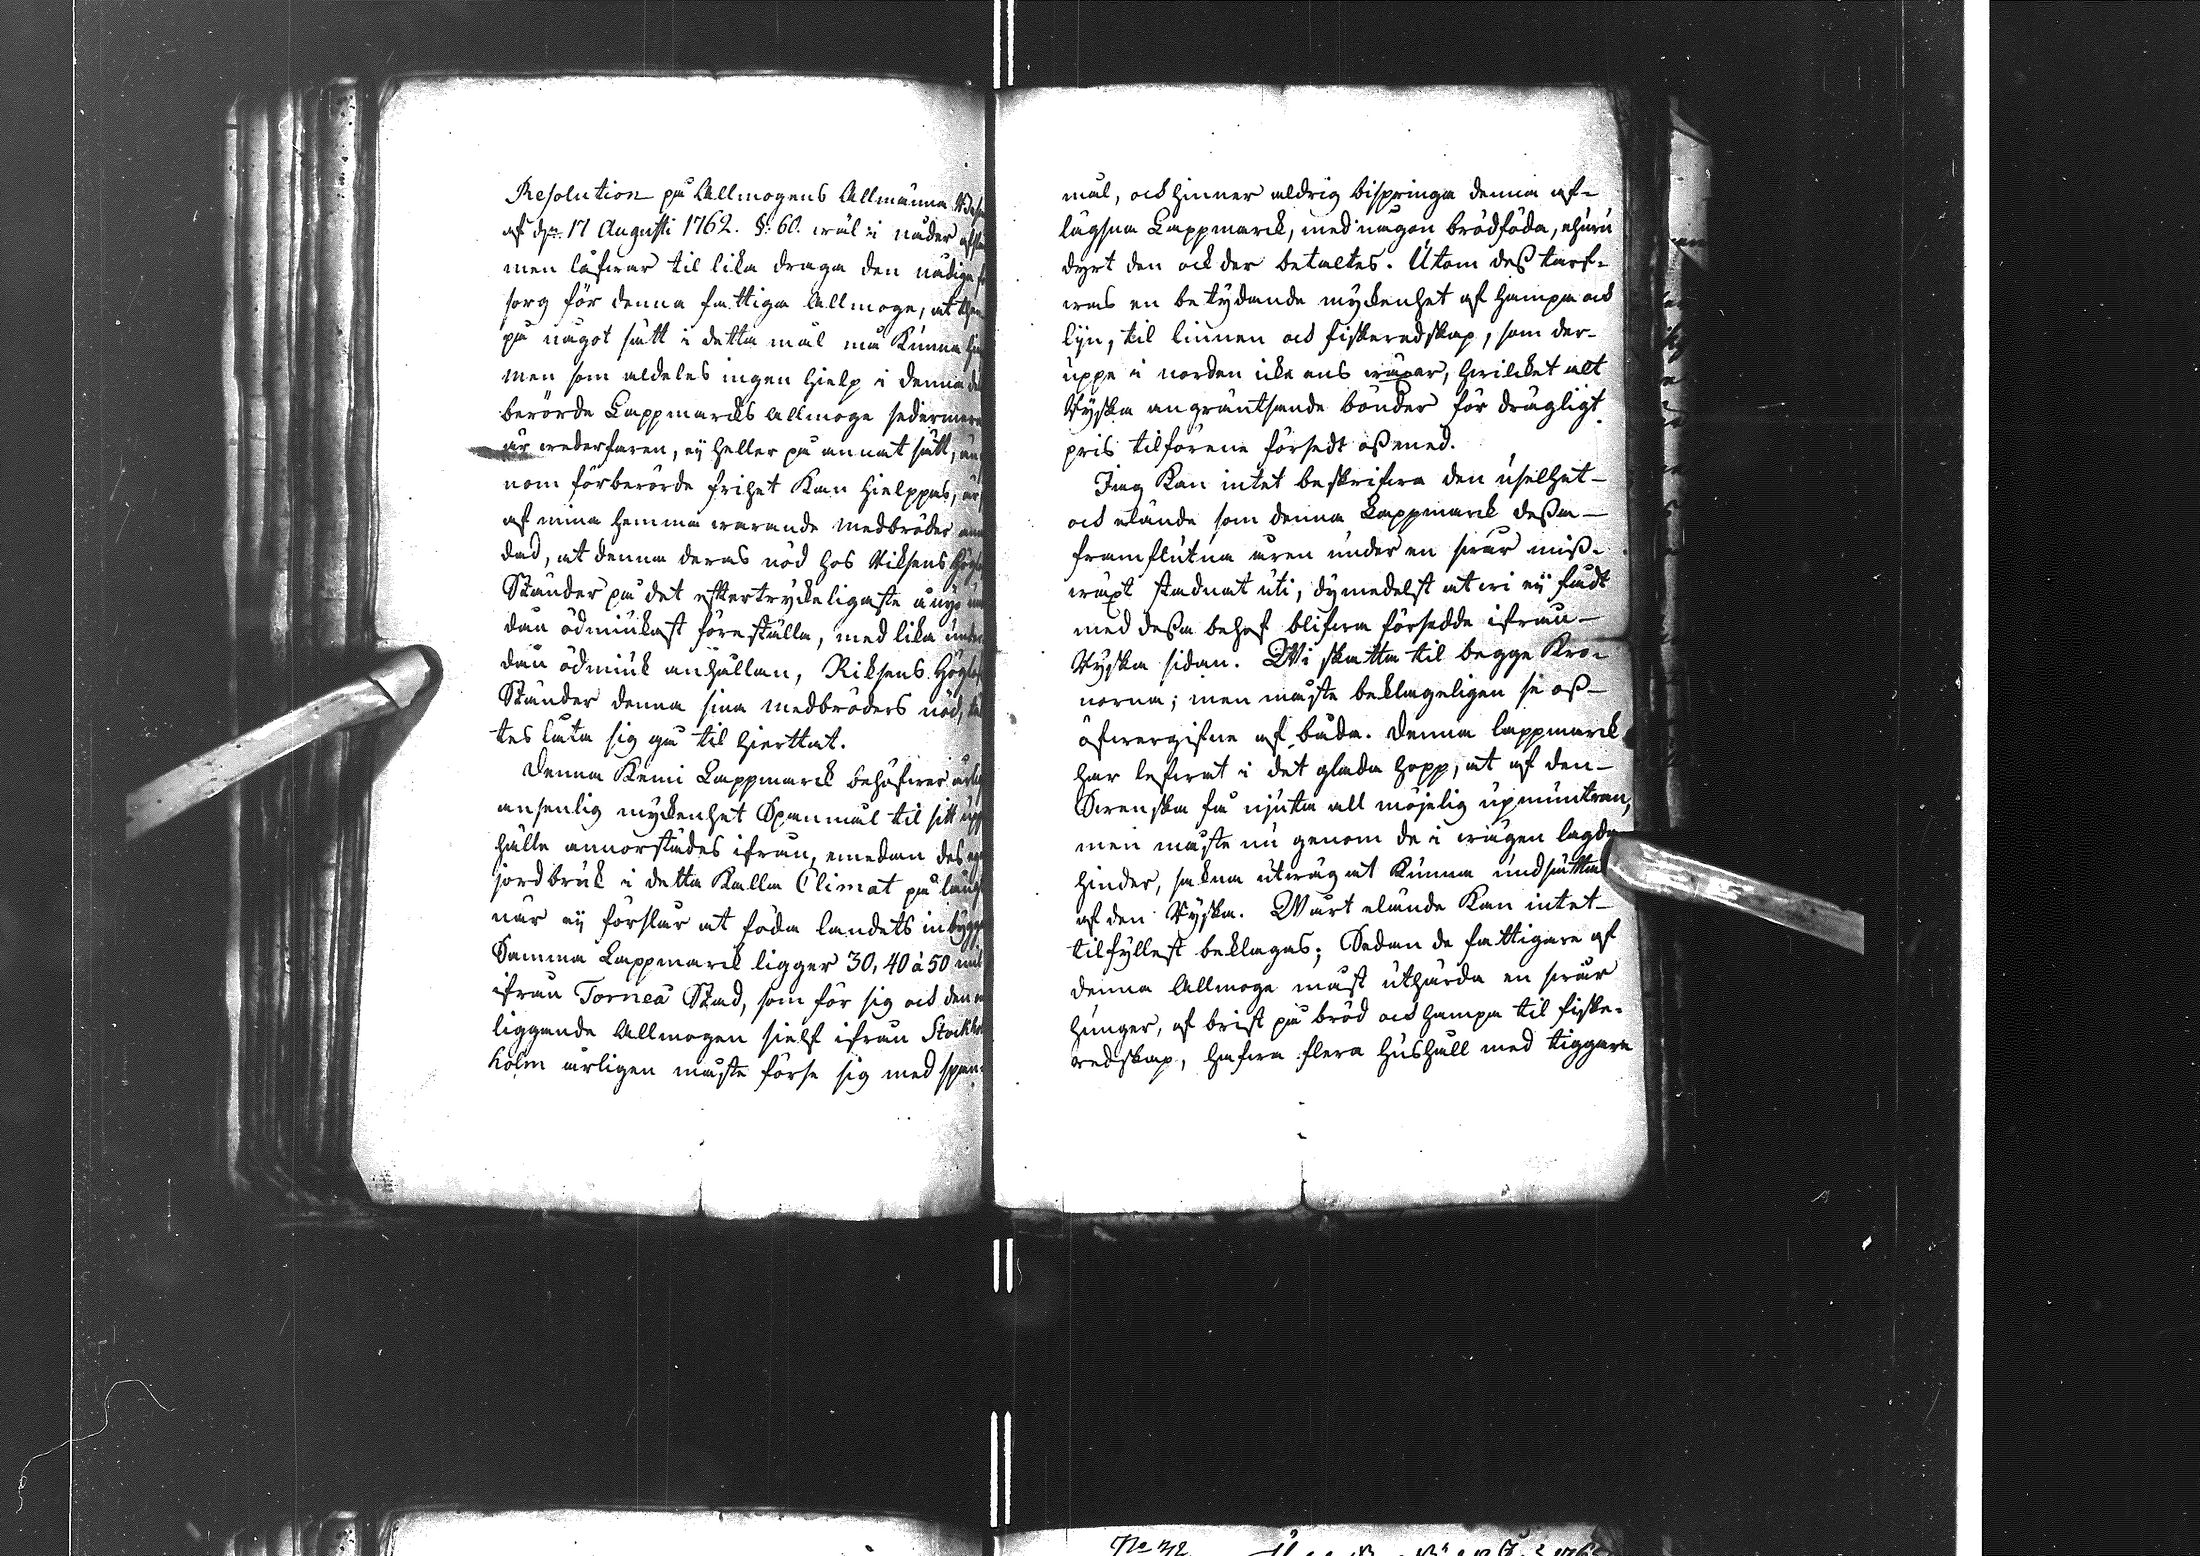 Resolution på Allmogens Allmänna
af d. 17 Augusti 1762. §: 60. wäl i nåder
men läfwar til lika draga den nådiga
sorg för denna fattiga Allmoge, at
på något sätt i detta mål må Kunna
men som aldeles ingen hielp i denna
berörde Lappmarcks Allmoge sedermera
är wederfaren, eÿ heller på annat sätt,
nom förberörde frihet Kan hielppas, är
af mina hemma warande medbröder
dad, at denna deras nöd hos Riksens
Ständer på det eftertryckeligaste
dån ödmiukast föreställa, med lika
dån ödmiuk anhållan, Riksens Högl.
Ständer denna sina medbröders nöd,
tes låta sig gå til hierttat.
Denna Kemi Lappmarck behöfwer
ansenlig myckenhet Spanmål til sitt
hälle annorstädes ifrån, emedan des
jordbruk i detta Kalla Climat på långt
när eÿ förslår at föda landets
Samma Lappmarck ligger 30, 40 à 50 mil
ifrån Torneå Stad, som för sig och den
liggande Allmogen sielf ifrån Stock
holm årligen måste förse sig med span-
mål, och hinner aldrig bispringa denna af-
lägsna Lappmarck, med någon brödföda, ehuru
dyrt den ock der betaltes. Utom dess tarf-
was en betydande myckenhet af hampa och
lijn, til linnen och fiskeredskap, som der-
uppe i norden icke ens wäxer, hwilcket alt
Ryska angräntsande bönder för drägligt
pris tilförene försedt oss med.
Jag Kan intet beskrifwa den uselhet
och elände som denna Lappmarck dessa
framflutna åren under en swår miss-
wäxt stadnat uti, dymedelst at wi eÿ fådt
med dessa behof blifwa försedde ifrån
Ryska sidan. Wi skatta til begge Kro-
norna; men måste beklageligen se oss
öfwergifne af båda. Denna lappmarck
har lefwat i det glada hopp, at af den
Swenska få njuta all möjelig upmuntran,
men måste nu genom de i wägen lagda
hinder, sakna utwäg at Kunna undsättas
af den Ryska. Wårt elände Kan intet
tilfyllest beklagas; Sedan de fattigare af
denna Allmoge måst uthärda en swår
hunger, af brist på bröd och hampa til fiske-
redskap, hafwa flera hushåll med tiggare
No 32